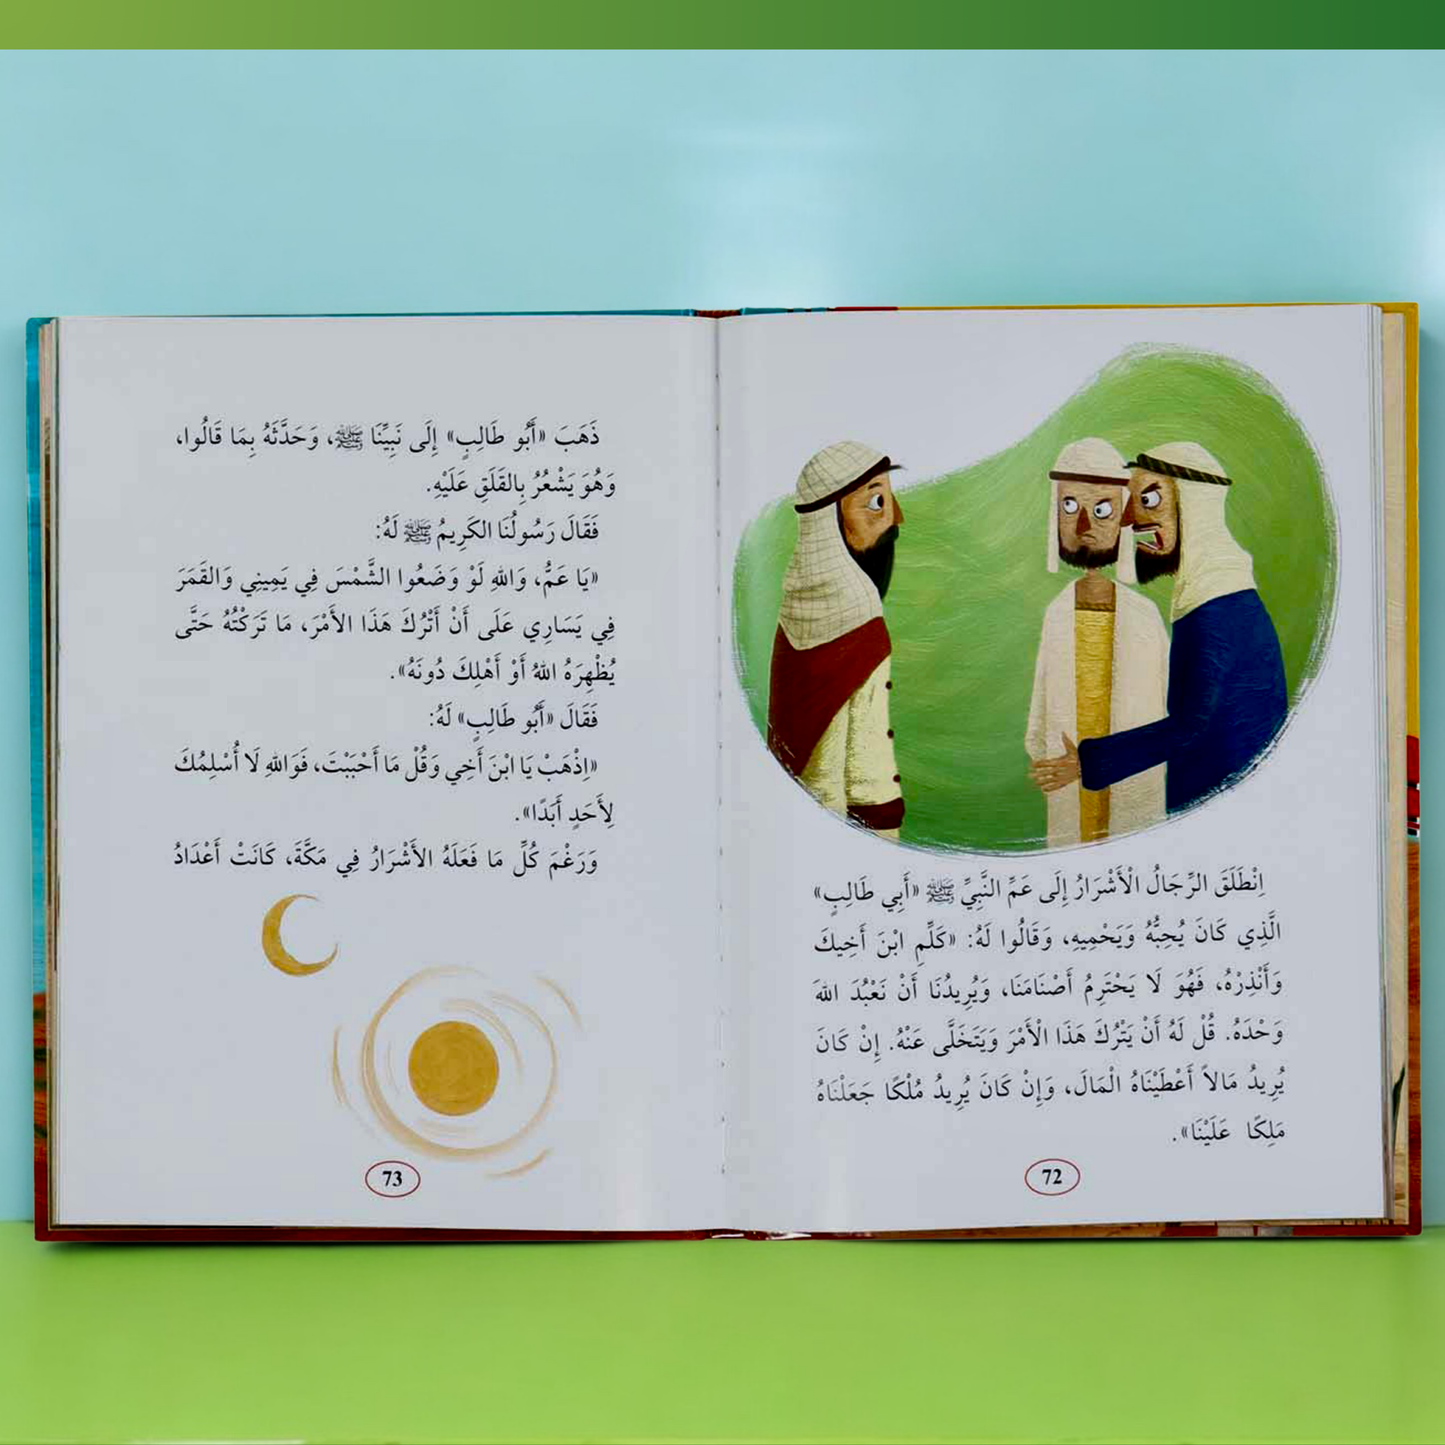 اِنْطَلَقَ الرِّجَالُ الْأَشْرَارُ إِلَى عَمِّ النَّبِيِّ ﷺ «أَبِي طَالِبٍ»
الَّذِي كَانَ يُحِبُّهُ وَيَحْمِيهِ، وَقَالُوا لَهُ: «كَلِّمِ ابْنَ أَخِيكَ
وَأَنْذِرْهُ، فَهُوَ لَا يَحْتَرِمُ أَصْنَامَنَا، وَيُرِيدُنَا أَنْ نَعْبُدَ اللهَ
وَحْدَهُ. قُلْ لَهُ أَنْ يَتْرُكَ هَذَا الْأَمْرَ وَيَتَخَلَّى عَنْهُ. إِنْ كَانَ
يُرِيدُ مَالاً أَعْطَيْنَاهُ الْمَالَ، وَإِنْ كَانَ يُرِيدُ مُلْكًا جَعَلْنَاهُ
مَلِكًا عَلَيْنَا».
72
ذَهَبَ «أَبُو طَالِبٍ» إِلَى نَبِيِّنَا ﷺ، وَحَدَّثَهُ بِمَا قَالُوا،
وَهُوَ يَشْعُرُ بِالقَلَقِ عَلَيْهِ.
فَقَالَ رَسُولُنَا الكَرِيمُ ﷺ لَهُ:
«يَا عَمُّ، وَاللهِ لَوْ وَضَعُوا الشَّمْسَ فِي يَمِينِي وَالقَمَرَ
فِي يَسَارِي عَلَى أَنْ أَتْرُكَ هَذَا الأَمْرَ، مَا تَرَكْتُهُ حَتَّى
يُظْهِرَهُ اللهُ أَوْ أَهْلِكَ دُونَهُ».
فَقَالَ «أَبُو طَالِبٍ» لَهُ:
«اِذْهَبْ يَا ابْنَ أَخِي وَقُلْ مَا أَحْبَبْتَ، فَوَاللهِ لَا أُسْلِمُكَ
لِأَحَدٍ أَبَدًا».
وَرَغْمَ كُلِّ مَا فَعَلَهُ الأَشْرَارُ فِي مَكَّةَ، كَانَتْ أَعْدَادُ
73